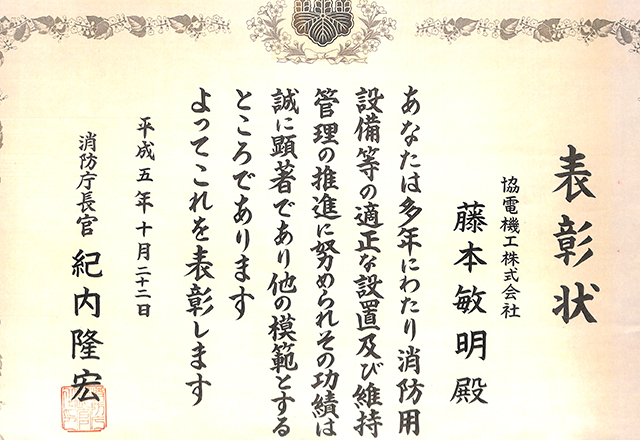 表彰状
協電機工株式会社
藤本敏明殿
あなたは多年にわたり消防用
設備等の適正な設置及び維持
管理の推進に努められその功績は
誠に顕著であり他の模範とする
ところであります
よってこれを表彰します
平成五年十月二十二日
消防庁長官 紀内隆宏